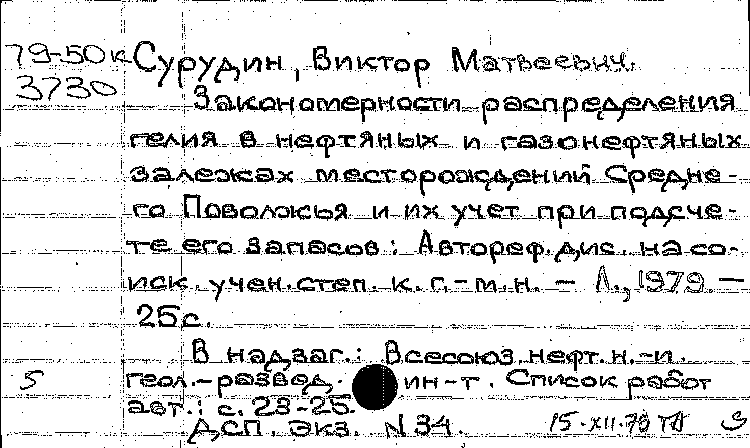 79-50к
3730
Сурудин, Виктор Матвеевич.
Закономерности распределения
гелия в нефтяных и газонефтяных
залежах месторождений Средне-
го Поволжья и их учет при подсче-
те его запасов: Автореф. дис. на со-
иск. учен. степ. к. г.-м.н. – Л., 1979. –
25с.
В надзаг.: Всесоюз. нефт. н.-и.
5 геол.-развед. ин-т. Список работ
авт.: с. 23-25.
ДСП. Экз. N 34. 15.XII.79